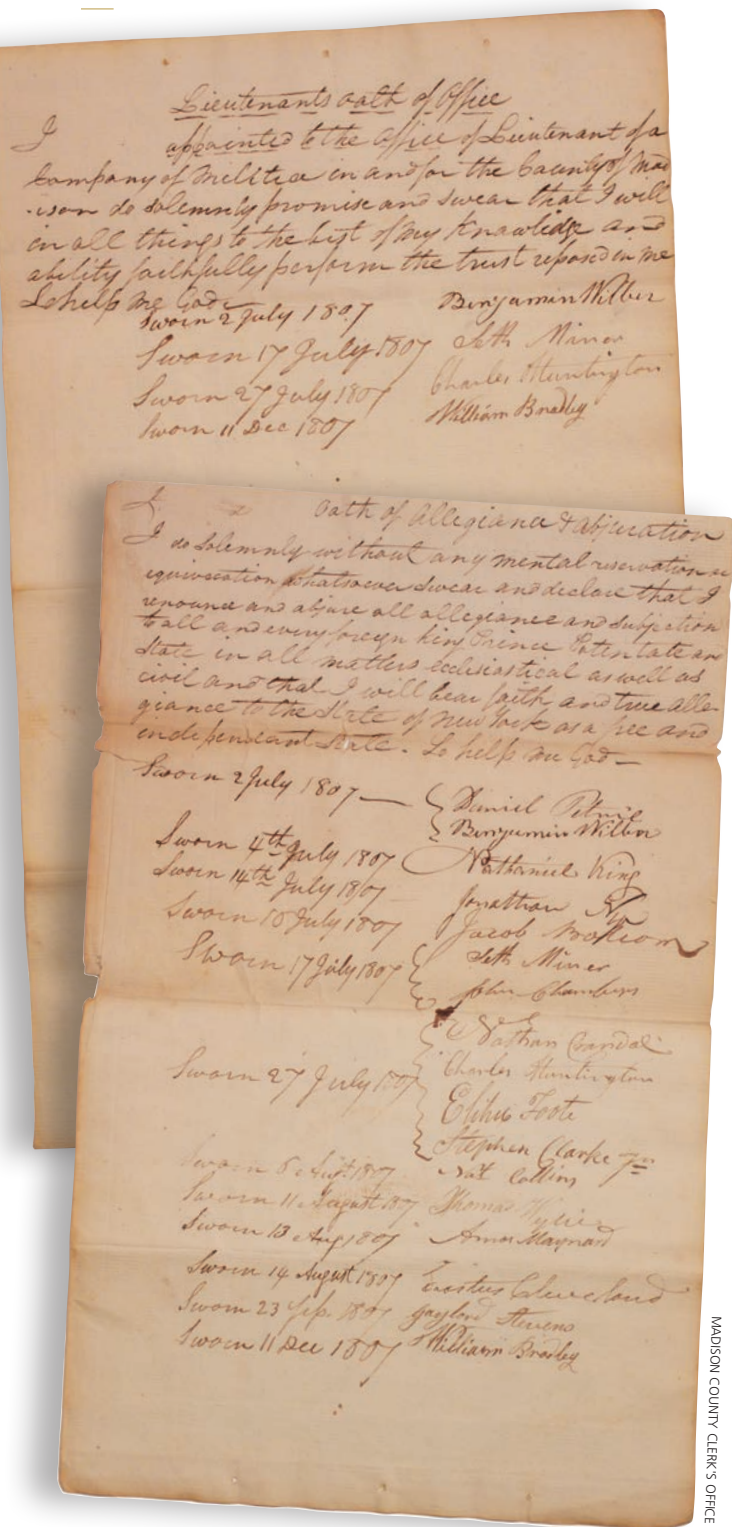 Lieutenants oath of Office
I appointed to the Office of Lieutenant of a
Company of Militia in and for the County of Mad
-ison do solemnly promise and swear that I will
in all things to the best of my Knowledge and
ability faithfully perform the trust reposed in me
So help me God
Sworn 2 July 1807 Benjamin Wilber
Sworn 17 July 1807 Seth Miner
Sworn 27 July 1807 Charles Huntington
Sworn 11 Dec 1807 William Bradley
I Oath of Allegiance & Abjuration
I do solemnly without any mental reservation or
equivocation whatsoever swear and declare that I
renounce and abjure all allegiance and subjection
to all and every foreign King Prince Potentate and
State in all matters ecclesiastical as well as
civil and that I will bear faith and true alle-
giance to the State of New York as a free and
independant State. So help me God —
Sworn 2 July 1807 — Daniel
Benjamin Wilber
Sworn 4th July 1807 Nathaniel King
Sworn 14th July 1807 Jonathan
Sworn 10 July 1807 Jacob
Sworn 17 July 1807 Seth Miner
John Chambers
Nathan Crandal
Sworn 27 July 1807 Charles Huntington
Elihu Foote
Stephen Clarke Jn
Sworn 8 Augt 1807 Nat Collins
Sworn 11 August 1807 Thomas Wylie
Sworn 13 Aug 1807 Amos Maynard
Sworn 14 August 1807 Erastus Cleaveland
Sworn 23 Sep. 1807 Gaylord Stevens
Sworn 11 Dec 1807 William Bradley
MADISON COUNTY CLERK'S OFFICE